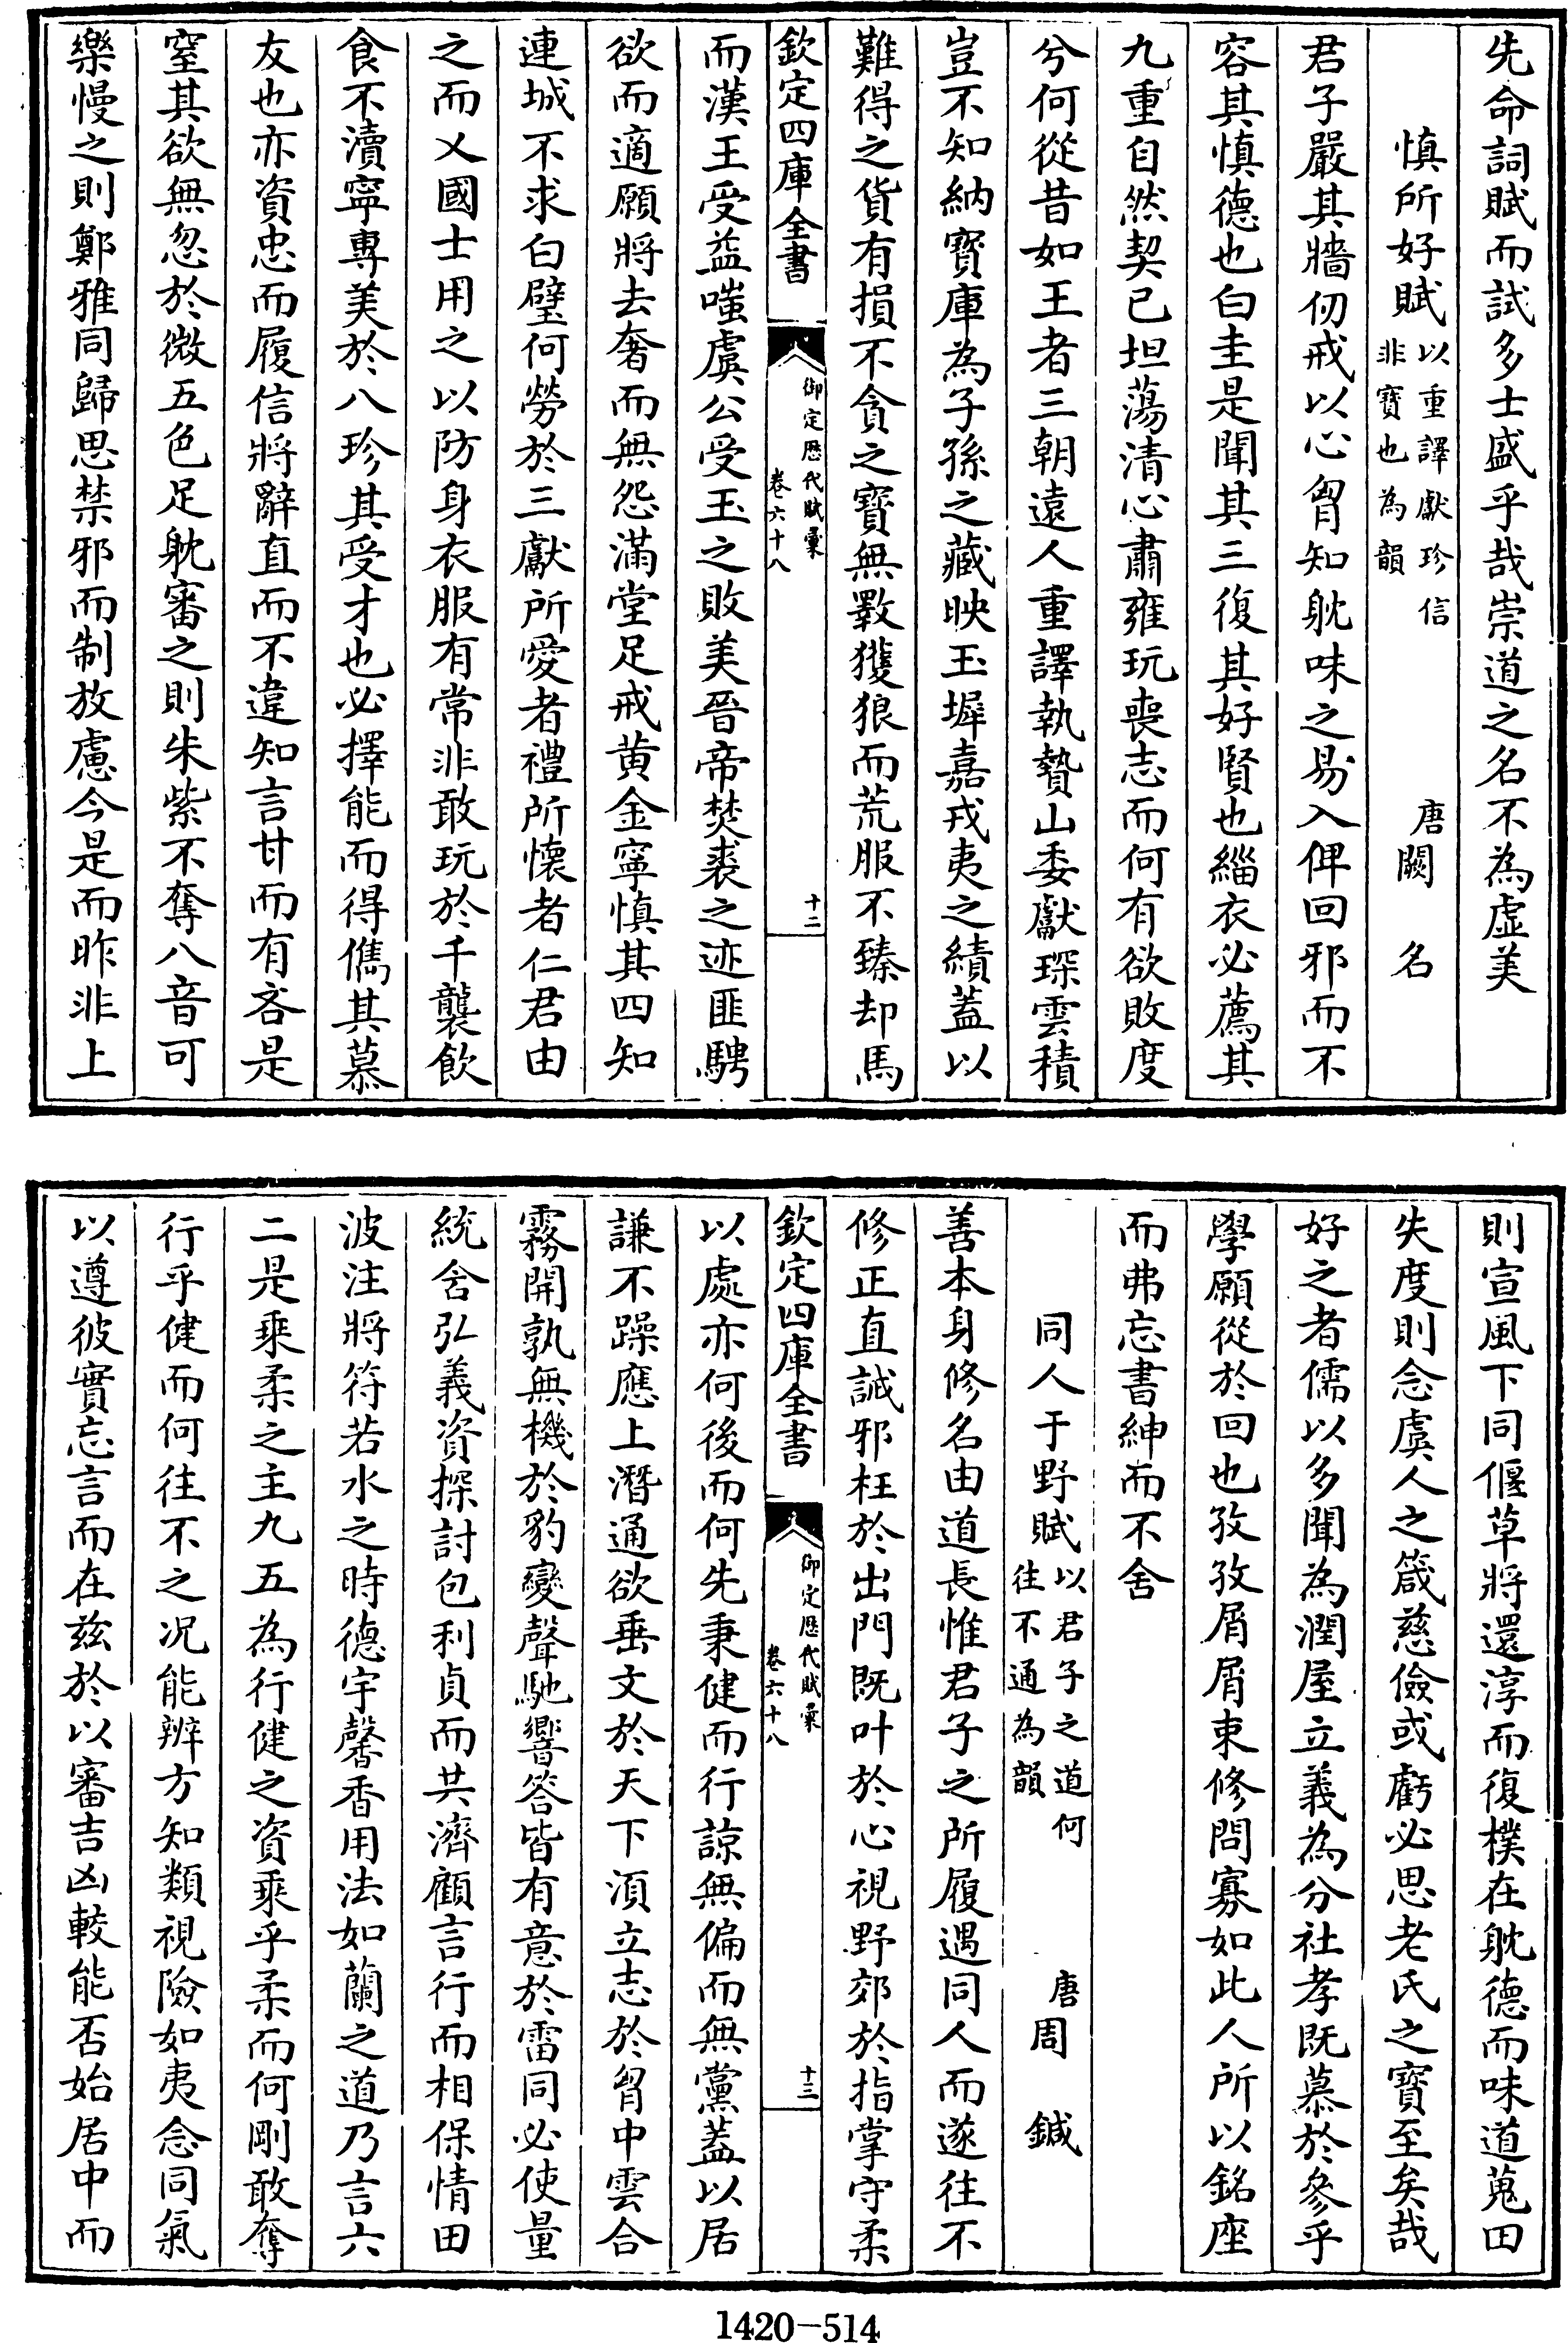 先命詞賦而試多士盛乎哉崇道之名不為虛美
慎所好賦以重譯獻珍信非寶也為韻 唐闕名
君子嚴其牆仞戒以心胷知躭味之易入俾回邪而不
容其慎德也白圭是聞其三復其好賢也緇衣必薦其
九重自然契已坦蕩清心肅雍玩喪志而何有欲敗度
兮何從昔如王者三朝遠人重譯執贄山委獻琛雲積
豈不知納寶庫為子孫之藏映玉墀嘉戎夷之績蓋以
難得之貨有損不貪之寶無斁獲狼而荒服不臻却馬
欽定四庫全書
御定歷代賦彙
卷六十八
十二
而漢王受益嗤虞公受玉之敗美晉帝焚裘之迹匪騁
欲而適願將去奢而無怨滿堂足戒黄金寧慎其四知
連城不求白璧何勞於三獻所愛者禮所懷者仁君由
之而乂國士用之以防身衣服有常非敢玩於千襲飲
食不瀆寧專美於八珍其受才也必擇能而得儁其慕
友也亦資忠而履信將辭直而不違知言甘而有吝是
窒其欲無忽於微五色足躭審之則朱紫不奪八音可
樂慢之則鄭雅同歸思禁邪而制放慮今是而昨非上
則宣風下同偃草將還淳而復樸在躭德而味道蒐田
失度則念虞人之箴慈儉或虧必思老氏之寶至矣哉
好之者儒以多聞為潤屋立義為分社孝既慕於參乎
學願從於回也孜孜屑屑束修問寡如此人所以銘座
而弗忘書紳而不舍
同人于野賦以君子之道何往不通為韻 唐周鍼
善本身修名由道長惟君子之所履遇同人而遂往不
修正直誠邪枉於出門既叶於心視野郊於指掌守柔
欽定四庫全書
御定歷代賦彙
卷六十八
十三
以處亦何後而何先秉健而行諒無偏而無黨蓋以居
謙不躁應上潛通欲垂文於天下湏立志於胷中雲合
霧開孰無機於豹變聲馳響答皆有意於雷同必使量
統含弘義資探討包利貞而共濟顧言行而相保情田
波注將符若水之時德宇馨香用法如蘭之道乃言六
二是乘柔之主九五為行健之資乘乎柔而何剛敢奪
行乎健而何往不之况能辨方知類視險如夷念同氣
以遵彼實忘言而在兹於以審吉凶較能否始居中而
1420-514